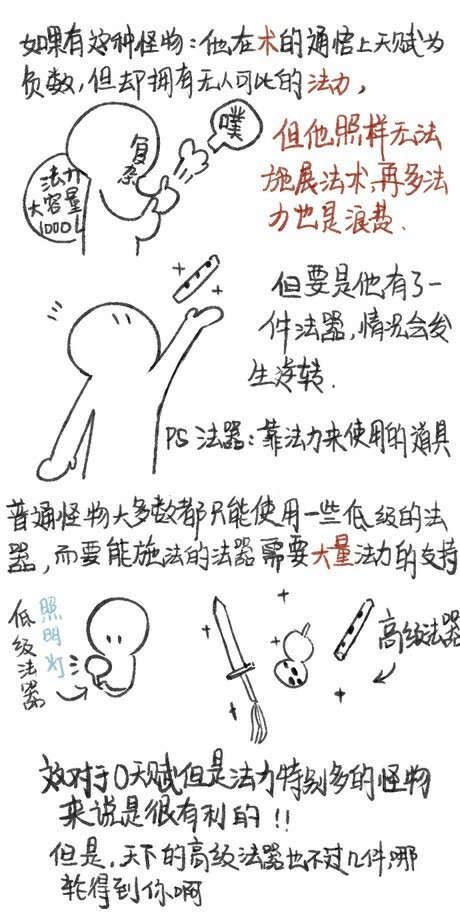 如果有这种怪物:他在术的通悟上天赋为
负数,但却拥有无人可比的法力,
复杂
噗
法力
大容量
1000L
但他照样无法
施展法术,再多法
力也是浪费.
但要是他有了一
件法器,情况会发
生逆转.
PS 法器:靠法力来使用的道具
普通怪物大多数都只能使用一些低级的法
器,而要能施法的法器需要大量法力的支持
低级法器
照明灯
高级法器
这对于0天赋但是法力特别多的怪物
来说是很有利的!!
但是,天下的高级法器也不过几件,哪
轮得到你啊